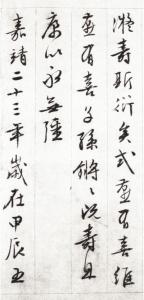 凝壽斯衍矣式臺有喜維
臺有喜子孫鏘〻既壽且
康以永無疆
嘉靖二十三年歲在甲辰五